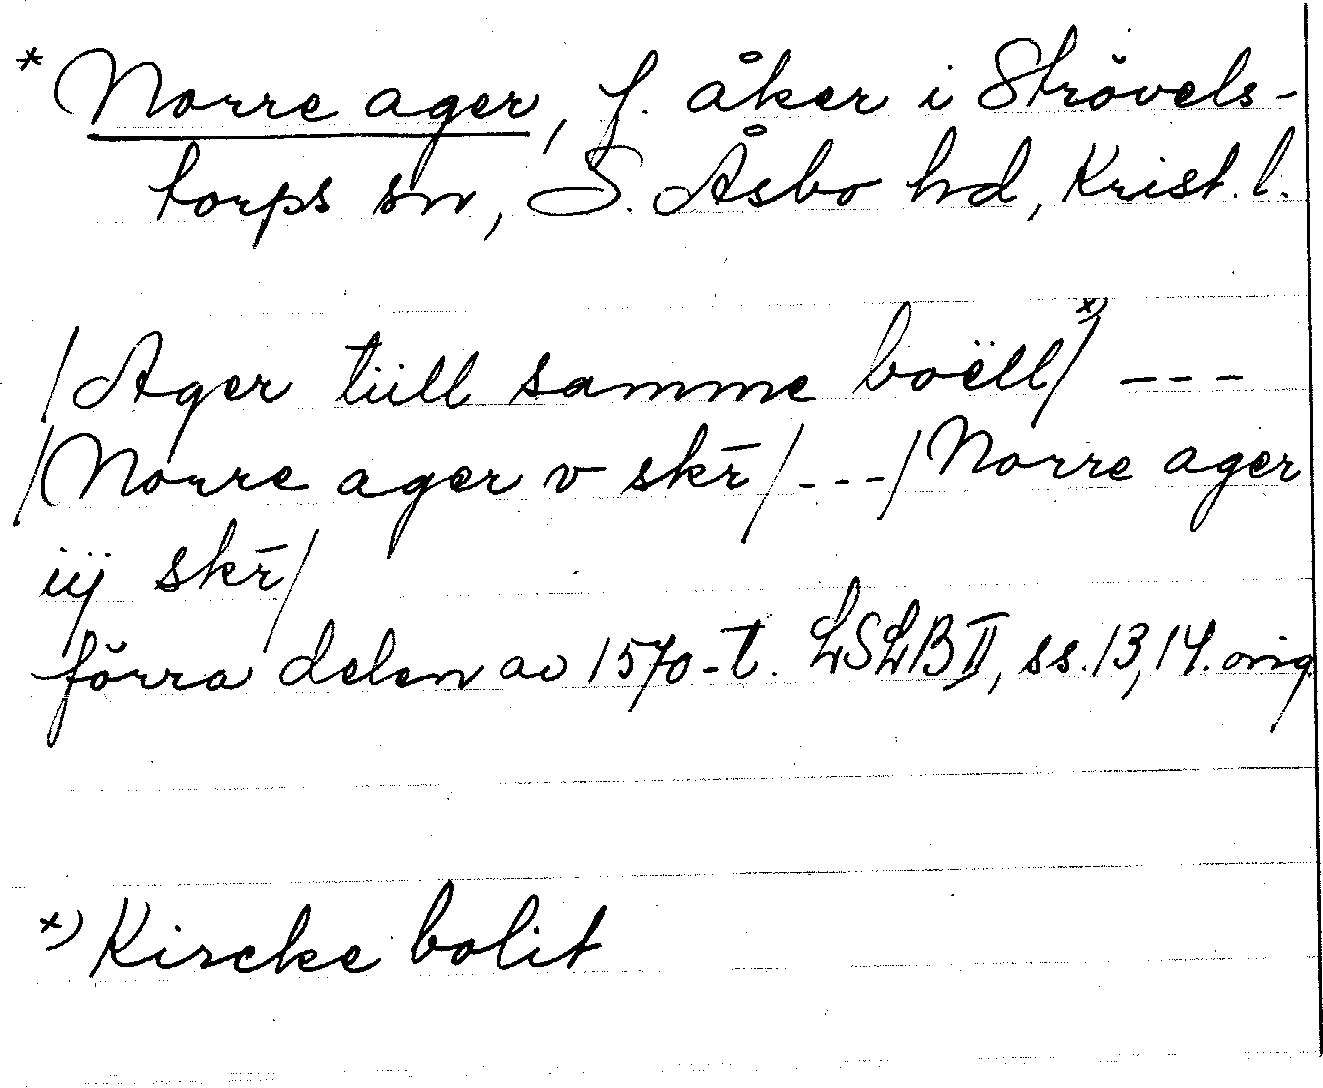 * Norre ager, f. åker i Strövels-
torps sn, S. Åsbo hd, Krist. l.
/Ager tüll samme boëll/ x) ---
/Norre ager v skr̄/ ---/Norre ager
iij skr̄/
förra delen av 1570-t. LSLB II, ss. 13, 14. orig.
x) Kircke bolit